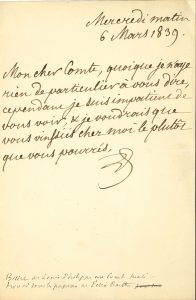 Mercredi matin
6 Mars 1839.
Mon cher Comte, quoique je n'aye
rien de particulier à vous dire,
cependant je suis impatient de
vous voir, & je voudrais que
vous vinssiez chez moi le plutôt
que vous pourrés.
Louis Philippe au Comte Molé